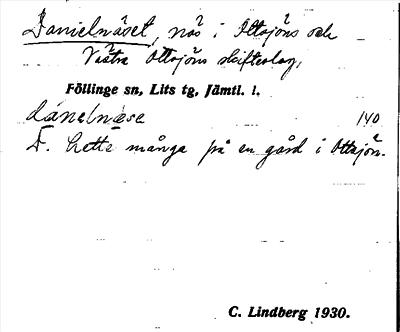 Danielnäset, näs i Ottsjöns och
Västra Ottsjöns skifteslag,
Föllinge sn, Lits tg, Jämtl. l.
dánelnæse 140
D. hette många på en gård i Ottsjön.
C. Lindberg 1930.